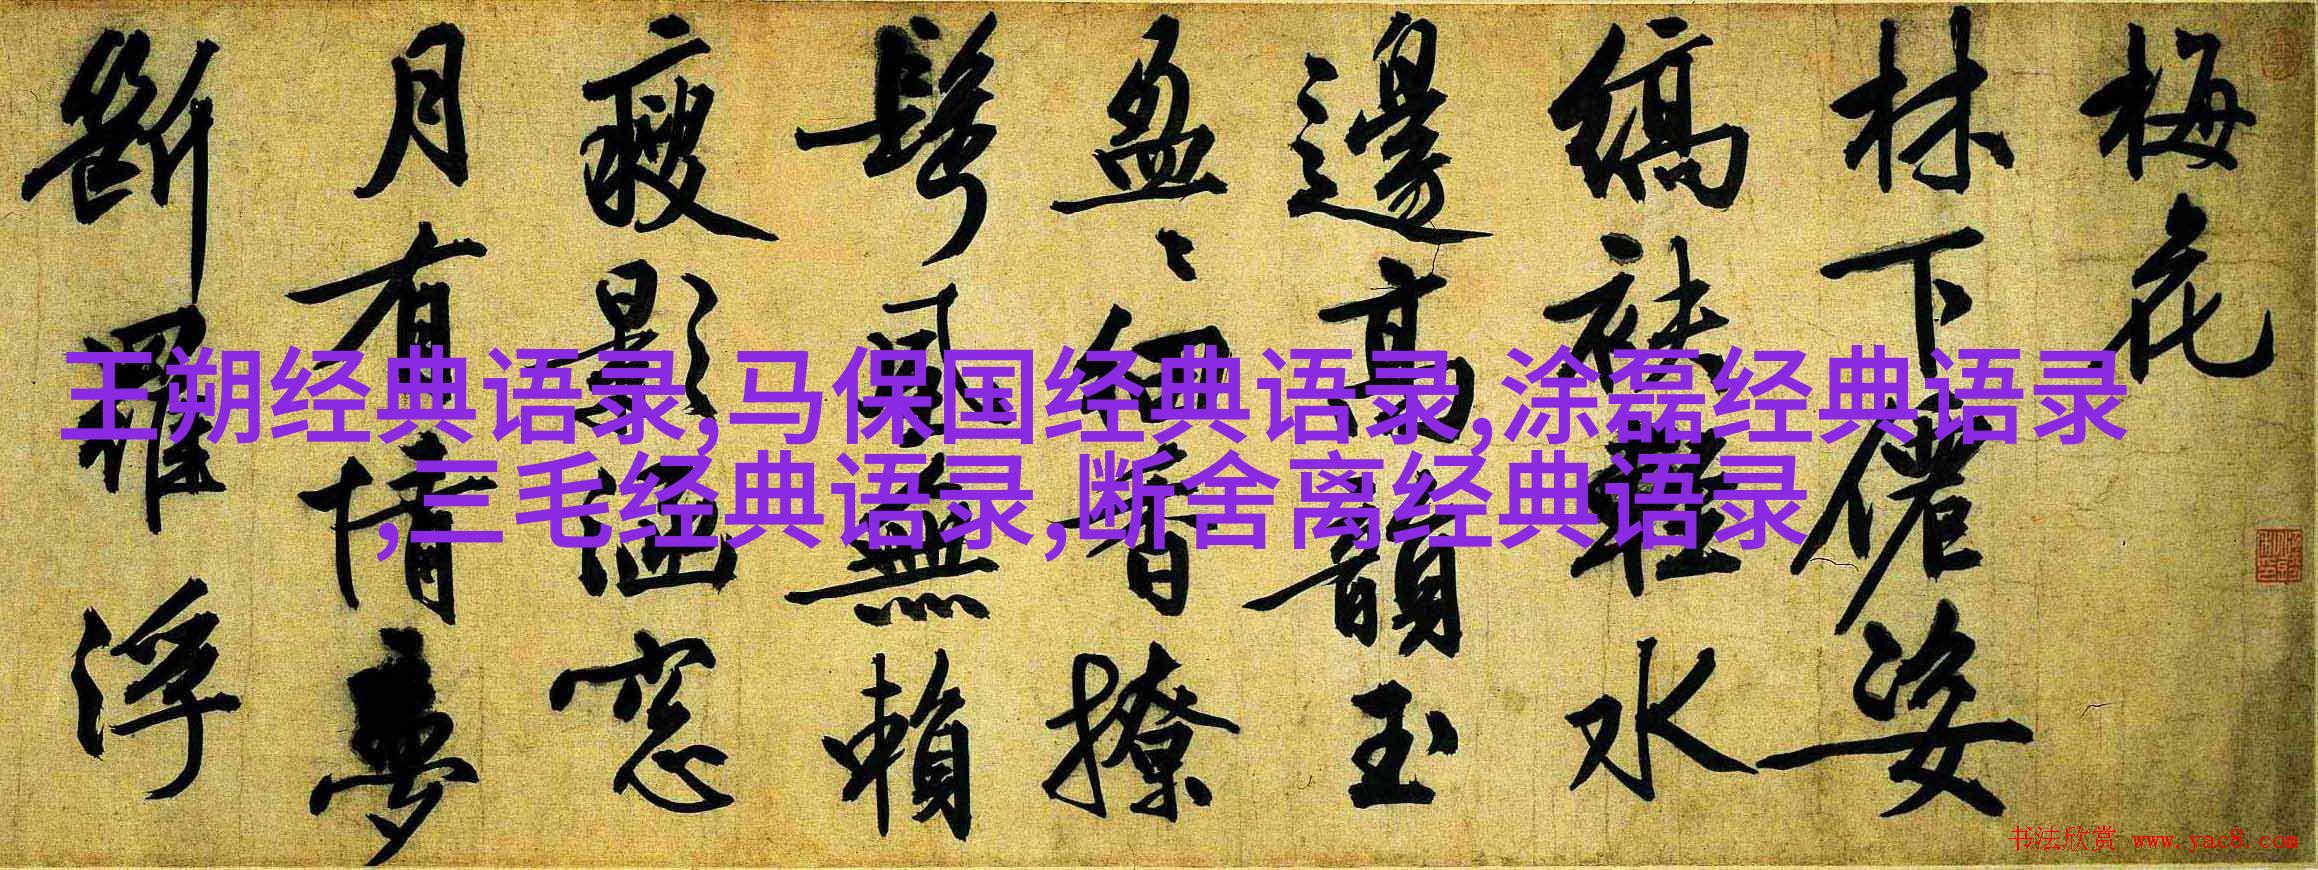 梅花
林下僊姿
縞袂輕水
邊高韻玉
盈〻細香撩
鬢風無賴
瘦影涵窓
月有情夢
斷羅浮
王朔经典语录,马保国经典语录,涂磊经典语录
,三毛经典语录,断舍离经典语录
书法欣赏 www.yac8.com